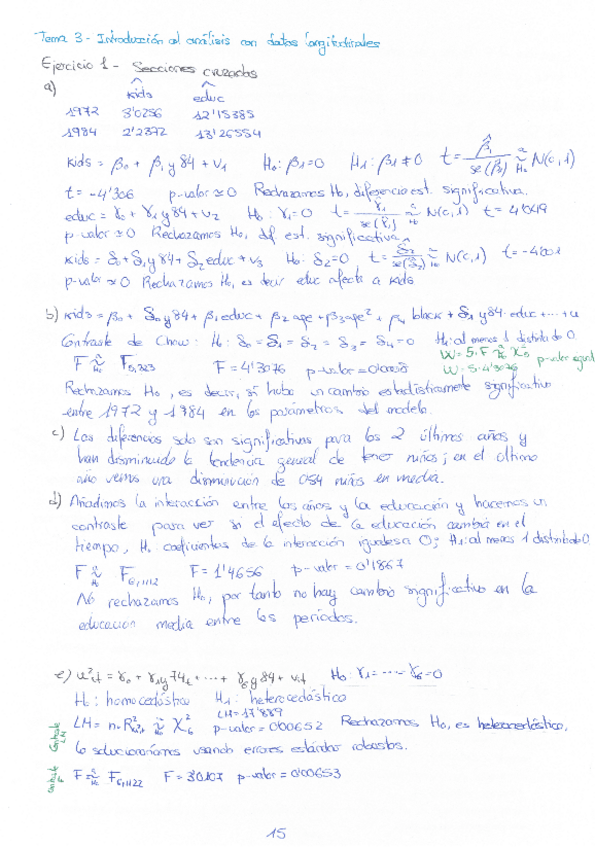 Tema 3 - Introducción al análisis con datos longitudinales
Ejercicio 1 - Secciones cruzadas
a) kids^ educ^
1972 3'0256 12'15385
1984 2'2372 13'26554
kids = β0 + β1 y84 + v1 H0: β1=0 H1: β1≠0 t = β̂1/se(β̂1) ~ N(0,1)
t = -4'306 p-valor ≈ 0 Rechazamos H0, diferencia est. significativa.
educ = γ0 + γ1 y84 + v2 H0: γ1=0 t = γ̂1/se(γ̂1) ~ N(0,1) t = 4'049
p-valor ≈ 0 Rechazamos H0, dif est. significativa
kids = δ0 + δ1 y84 + δ2 educ + v3 H0: δ2=0 t = δ̂2/se(δ̂2) ~ N(0,1) t = -4'001
p-valor ≈ 0 Rechazamos H0, es decir educ afecta a kids
b) kids = β0 + δ0 y84 + β1 educ + β2 age + β3 age² + β4 black + δ1 y84·educ + ... + u
Contraste de Chow: H0: δ0 = δ1 = δ2 = δ3 = δ4 = 0 H1: al menos 1 distinto de 0
F ~ F5,323 F = 4'3076 p-valor = 0'0008 W = 5·F ~ χ²5 p-valor igual
W = 5·4'3076
Rechazamos H0, es decir, si hubo un cambio estadísticamente significativo
entre 1972 y 1984 en los parámetros del modelo.
c) Las diferencias solo son significativas para los 2 últimos años y
han disminuido la tendencia general de tener niños; en el último
año vemos una disminución de 0'54 niños en media.
d) Añadimos la interacción entre los años y la educación y hacemos un
contraste para ver si el efecto de la educación cambia en el
tiempo, H0: coeficientes de la interacción iguales a 0; H1: al menos 1 distinto de 0
F ~ F6,1112 F = 1'4656 p-valor = 0'1867
No rechazamos H0, por tanto no hay cambio significativo en la
educación media entre los períodos.
e) u²it = γ0 + γ1 y74t + ... + γ6 y84 + vit H0: γ1 = ... = γ6 = 0
H0: homocedástico H1: heterocedástico
LM = 17'889
Contraste LM
LM = n·R²û² ~ χ²6 p-valor = 0'00652 Rechazamos H0, es heterocedástico,
lo solucionaríamos usando errores estándar robustos.
Contraste F
F ~ F6,1122 F = 3'0107 p-valor = 0'00653
15